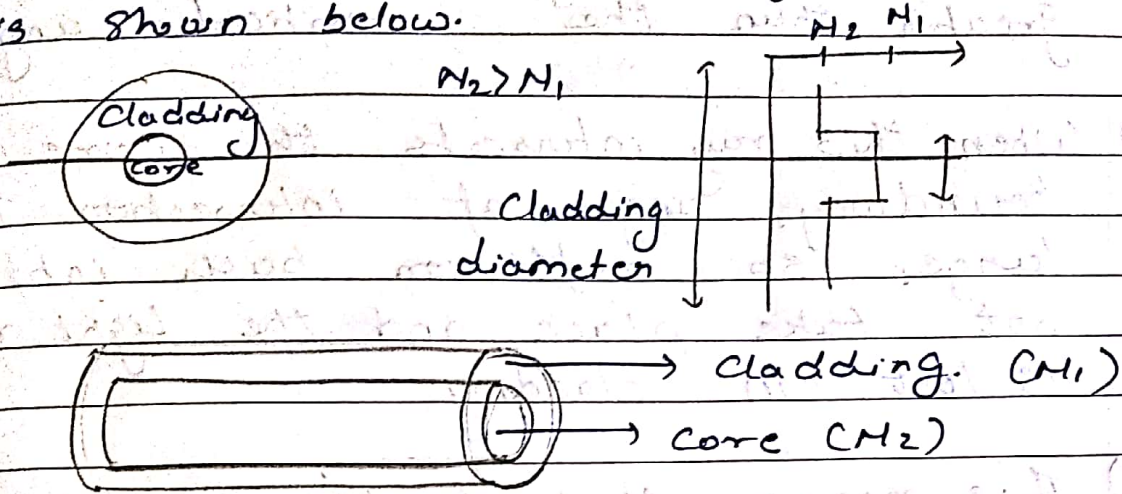 shown below.
N2 N1
N2 > N1
Cladding
core
Cladding
diameter
cladding. (N1)
core (N2)